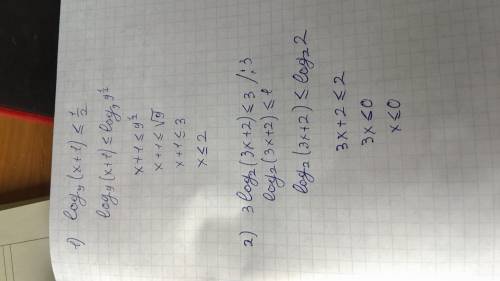 1) log₉(x+1) ≤ 1/2
log₉(x+1) ≤ log₉ 9^½
x+1 ≤ 9^½
x+1 ≤ √9
x+1 ≤ 3
x ≤ 2
2) 3 log₂(3x+2) ≤ 3 /:3
log₂(3x+2) ≤ 1
log₂(3x+2) ≤ log₂ 2
3x+2 ≤ 2
3x ≤ 0
x ≤ 0